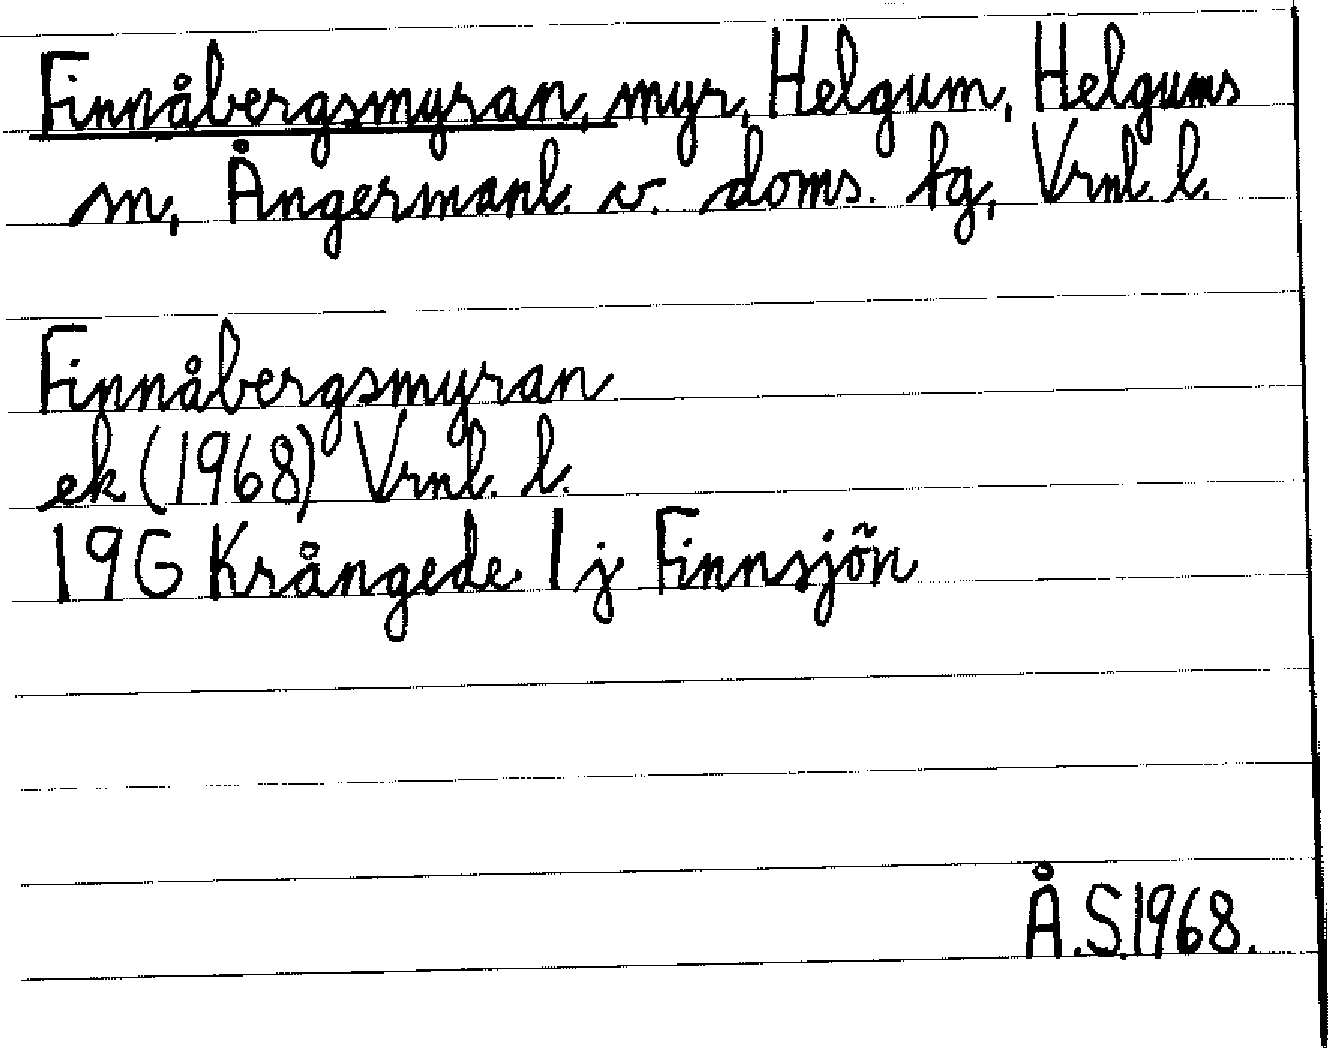 Finnåbergsmyran, myr, Helgum, Helgums
sn, Ångermanl. v. doms. tg, Vrnl. l.
Finnåbergsmyran
ek (1968) Vrnl. l.
19G Krångede 1 j Finnsjön
Å.S.1968.